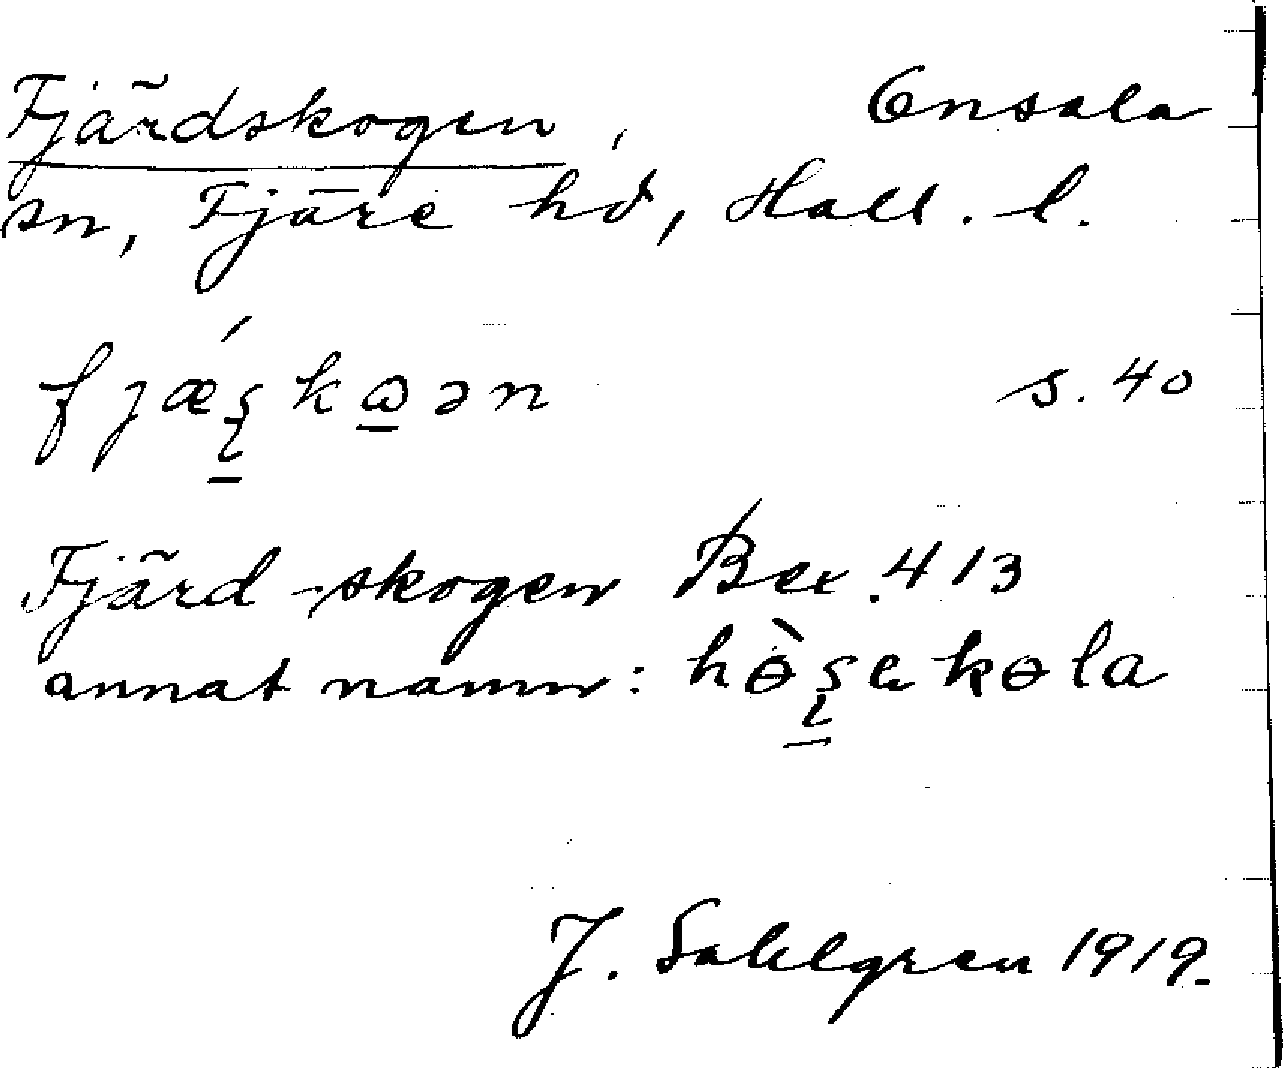 Fjärdskogen, Onsala
sn, Fjäre hd, Hall. l.
fjǽʂkωən s. 40
Fjärd-skogen Bex. 413
annat namn: hòʂakola
J. Sahlgren 1919.